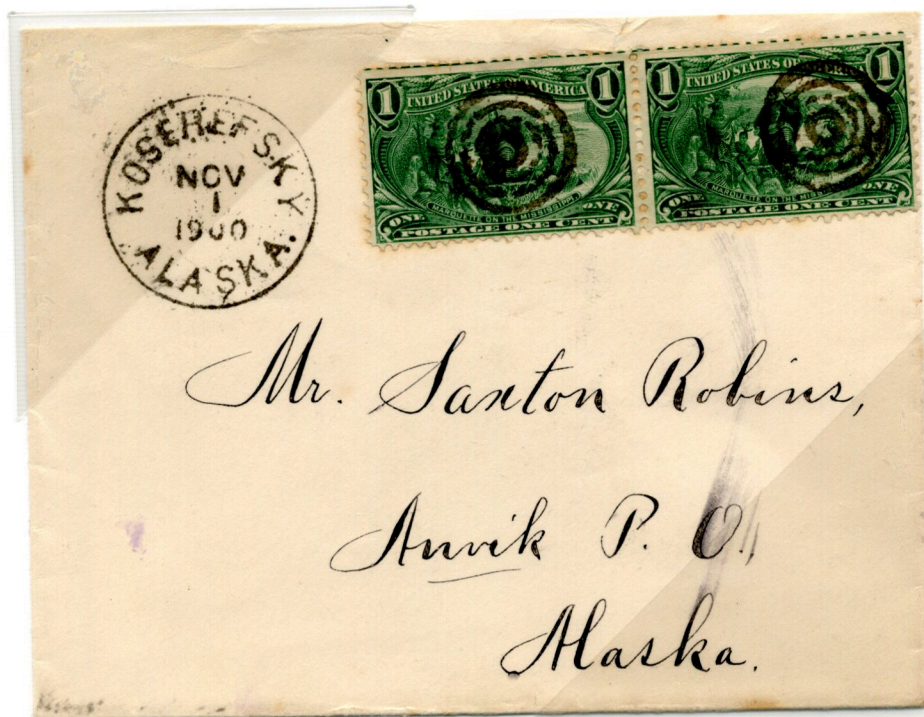 KOSEREFSKY
NOV
1
1900
ALASKA.
1 UNITED STATES OF AMERICA 1
MARQUETTE ON THE MISSISSIPPI.
ONE POSTAGE ONE CENT ONE
1 UNITED STATES OF AMERICA 1
MARQUETTE ON THE MISSISSIPPI.
ONE POSTAGE ONE CENT ONE
Mr. Saxton Robins,
Anvik P. O.,
Alaska.